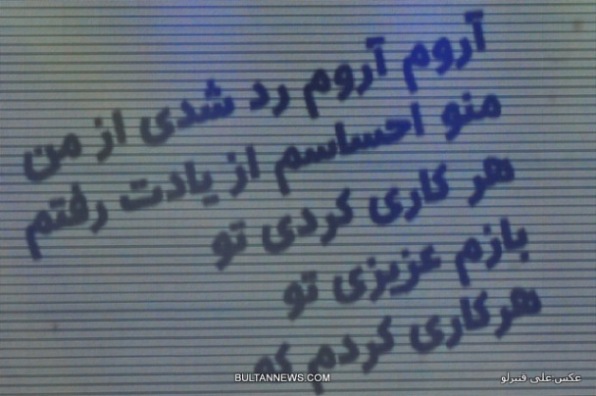 آروم آروم رد شدی از من
منو احساسم از یادت رفتم
هر کاری کردی تو
بازم عزیزی تو
هرکاری کردم که
BULTANNEWS.COM
عکس:علی قنبرلو